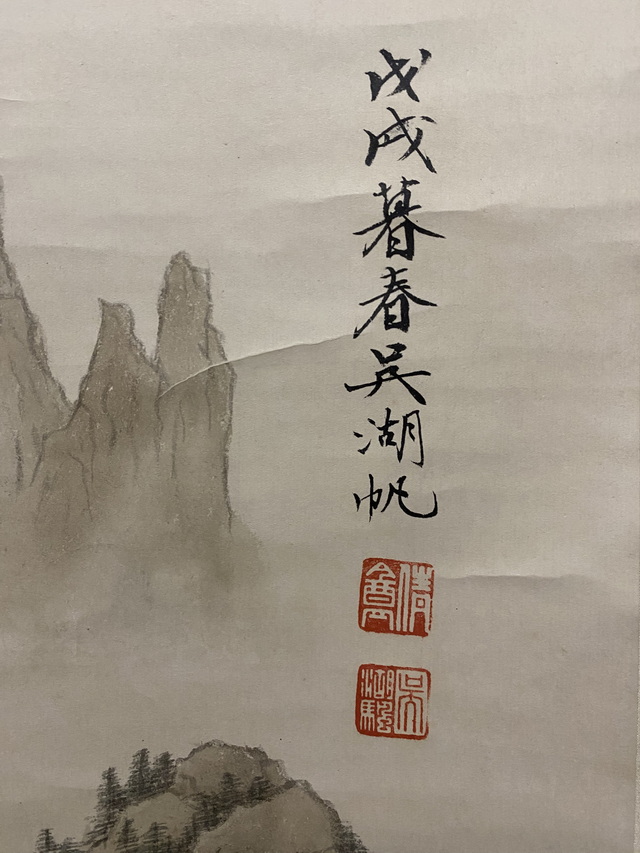 戊戌暮春吳湖帆
倩盦
吳湖颿